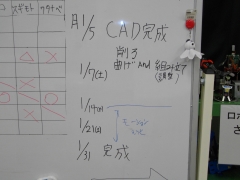 スギモト ワタナベ
月1/5 CAD完成
削る
1/7(土) 曲げ And 組み立て
1/14(土)
1/21(土)
1/31 完成
ロボ